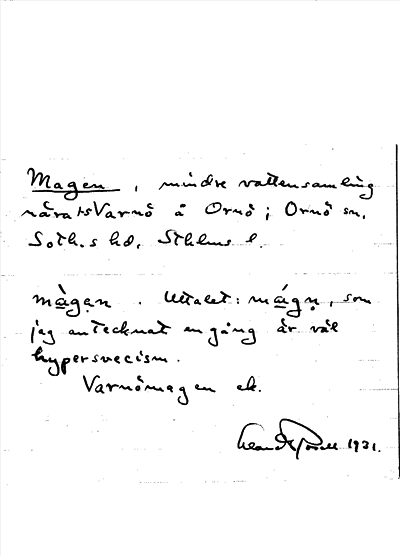 Magen, mindre vattensamling
nära Varnö å Ornö; Ornö sn,
Soth.s hd, Sthlms l.
màgan. Uttalet: mágn, som
jag antecknat en gång är väl
hypersvecism.
Varnömagen ek.
1931.